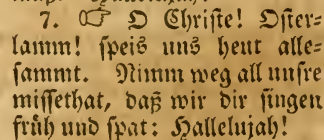 7. ☞ O Christe! Oster=
lamm! speis uns heut alle=
sammt. Nimm weg all unsre
missethat, daß wir dir singen
früh und spat: Hallelujah!